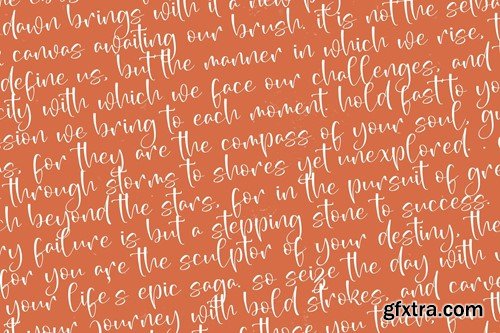 dawn brings with it a new
a canvas awaiting our brush. it is not the setba
define us, but the manner in which we rise,
city with which we face our challenges, and
ssion we bring to each moment. hold fast to yo
s, for they are the compass of your soul, gu
through storms to shores yet unexplored.
ch beyond the stars, for in the pursuit of gre
ry failure is but a stepping stone to success.
for you are the sculptor of your destiny, the
your life s epic saga. so seize the day with
your journey with bold strokes, and carve
those you touch
gfxtra.com